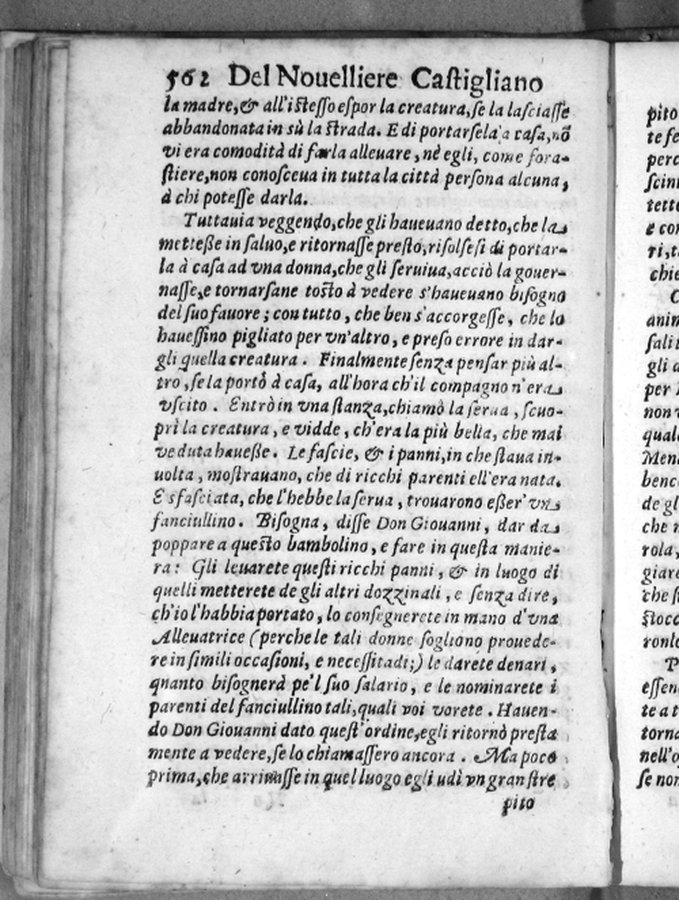 562 Del Nouelliere Castigliano
la madre, & all'istesso espor la creatura, se la lasciasse
abbandonata in sù la strada. E di portarsela à casa, nõ
vi era comodità di farla alleuare, nè egli, come fora-
stiere, non conosceua in tutta la città persona alcuna,
à chi potesse darla.
Tuttauia veggendo, che gli haueuano detto, che la
metteße in saluo, e ritornasse presto, risolsesi di portar-
la à casa ad vna donna, che gli seruiua, acciò la gouer-
nasse, e tornarsane tosto à vedere s'haueuano bisogno
del suo fauore; con tutto, che ben s'accorgesse, che lo
hauessino pigliato per vn'altro, e preso errore in dar-
gli quella creatura. Finalmente senza pensar più al-
tro, se la portò à casa, all'hora ch'il compagno n'era
vscito. Entrò in vna stanza, chiamò la serua, scuo-
prì la creatura, e vidde, ch'era la più bella, che mai
veduta haueße. Le fascie, & i panni, in che staua in-
uolta, mostrauano, che di ricchi parenti ell'era nata.
E sfasciata, che l'hebbe la serua, trouarono eßer' vn
fanciullino. Bisogna, disse Don Giouanni, dar da
poppare a questo bambolino, e fare in questa manie-
ra: Gli leuarete questi ricchi panni, & in luogo di
quelli metterete de gli altri dozzinali, e senza dire,
ch'io l'habbia portato, lo consegnerete in mano d'vna
Alleuatrice (perche le tali donne sogliono prouede-
re in simili occasioni, e necessitadi;) le darete denari,
quanto bisognerà pe'l suo salario, e le nominarete i
parenti del fanciullino tali, quali voi vorete. Hauen-
do Don Giouanni dato quest'ordine, egli ritornò presta
mente a vedere, se lo chiamassero ancora. Ma poco
prima, che arriuasse in quel luogo egli udì vn gran stre
pito
pito
te fe
perc
scin
tett
e con
ri, t
chie
C
anim
sali
gli d
per
non
qual
Men
benc
de gl
che n
rola,
giare
che s
stocc
ronl
P
essen
te a t
torna
nell'o
se non